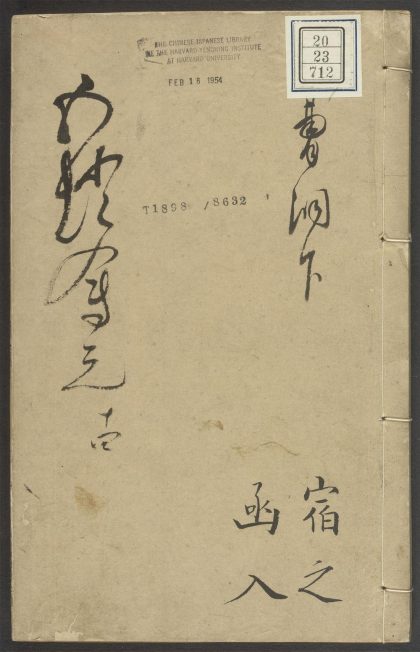 CHINESE-JAPANESE LIBRARY
THE HARVARD-YENCHING INSTITUTE
AT HARVARD UNIVERSITY
FEB 16 1954
20
23
712
T1898 /8632
曹洞下
宿之
函入
五燈會元 十四